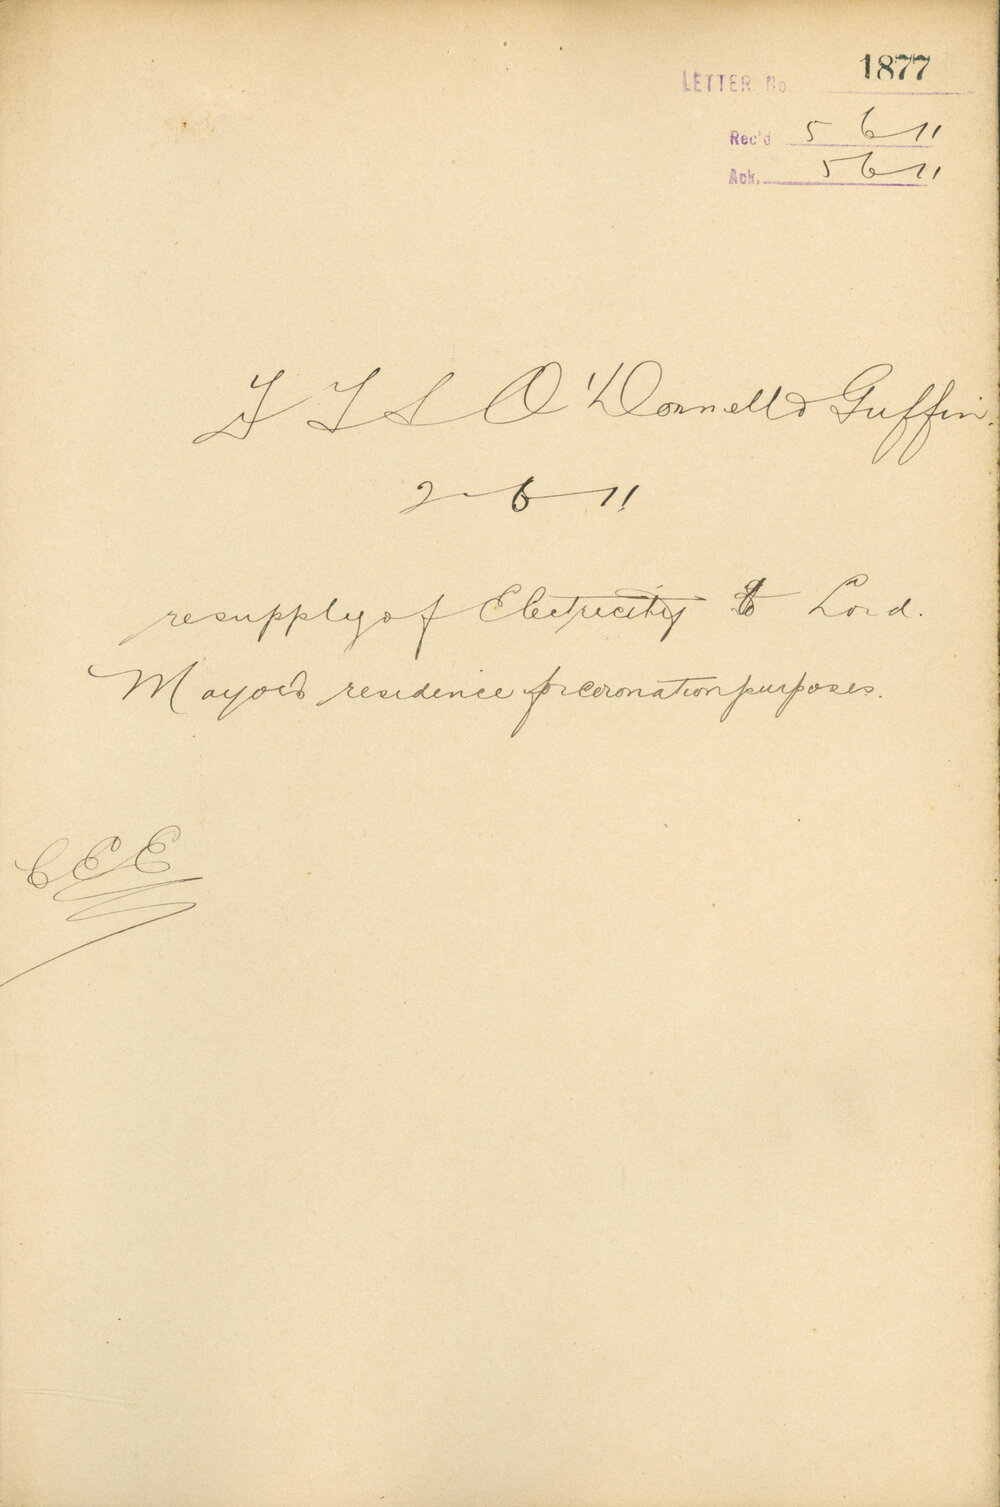 LETTER No. 1877
Rec'd 5 6 11
Ack. 5 6 11
O'Donnell & Griffin.
2-6-11
re supply of Electricity to Lord.
Mayor's residence for coronation purposes.
CEE